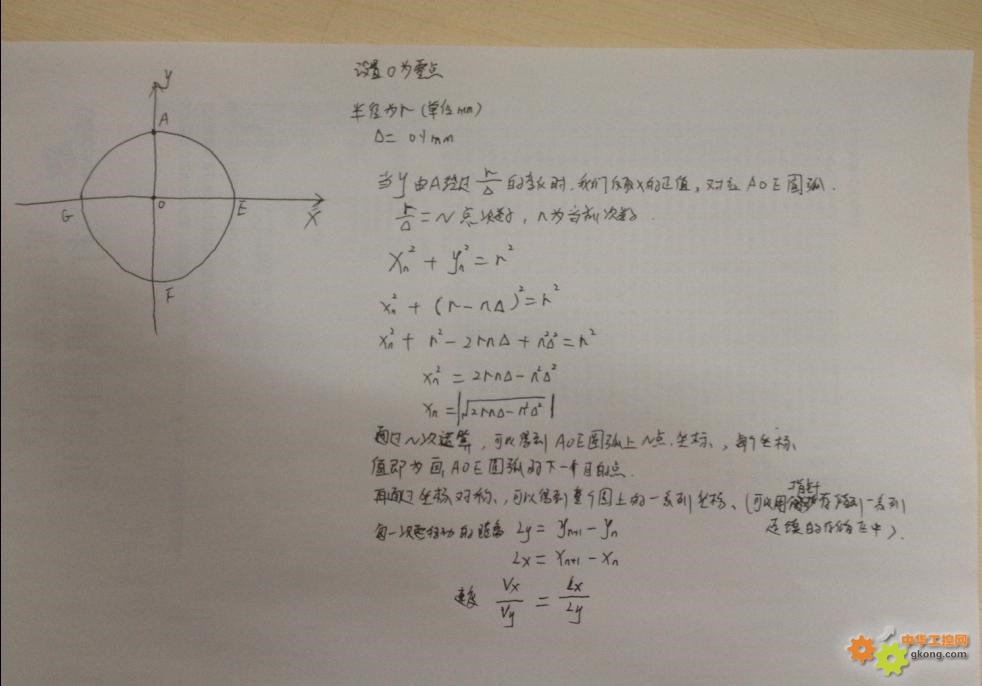 y
A
G
O
E
X
F
设置O为零点
半径为r(单位mm)
Δ= 0.1mm
当y由A经过 r/Δ 的查长时,我们仅取x的正值,对应AOE圆弧.
r/Δ = N 点次数,n为当前次数.
Xn² + yn² = r²
xn² + (r-nΔ)² = r²
xn² + r² - 2rnΔ + n²Δ² = r²
xn² = 2rnΔ - n²Δ²
xn = |√2rnΔ-n²Δ²|
通过N次运算,可以得到AOE圆弧上N点坐标,每个坐标
值即为画AOE圆弧的下一个目的点.
再通过坐标对称,可以得到整个圆上的一系列坐标、(可以用指针存储到一系列
连续的存储区中).
每一次要移动的距离 Ly = yn+1 - yn
Lx = xn+1 - xn
速度 Vx/Vy = Lx/Ly
中华工控网
gkong.com